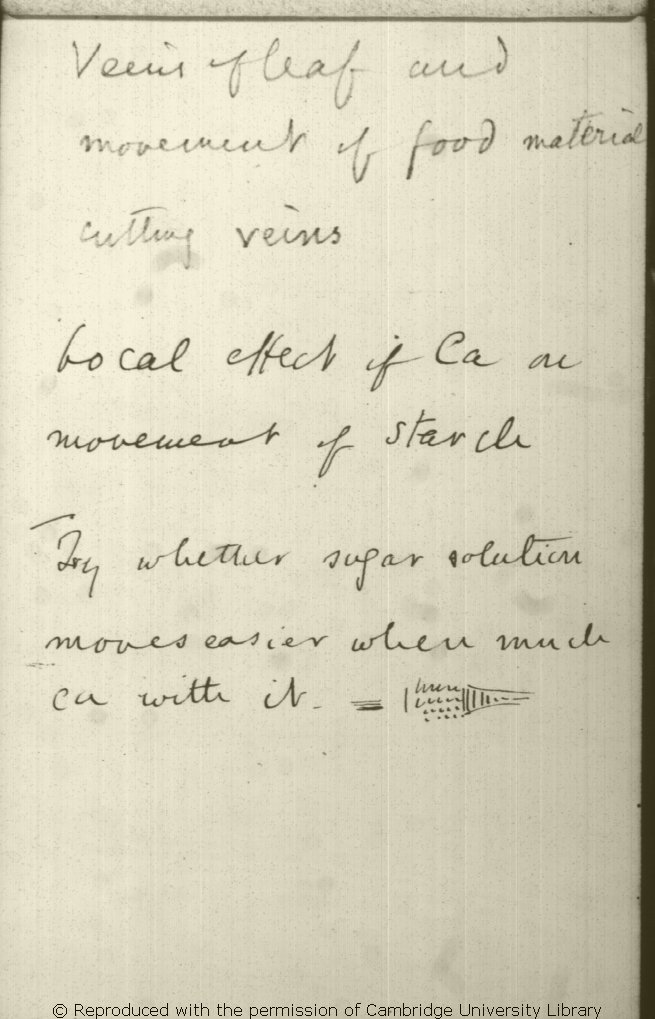 Veins of leaf and
movement of food material
cutting veins
Local effect of Ca on
movement of starch
Try whether sugar solution
moves easier when much
Ca with it. =
© Reproduced with the permission of Cambridge University Library